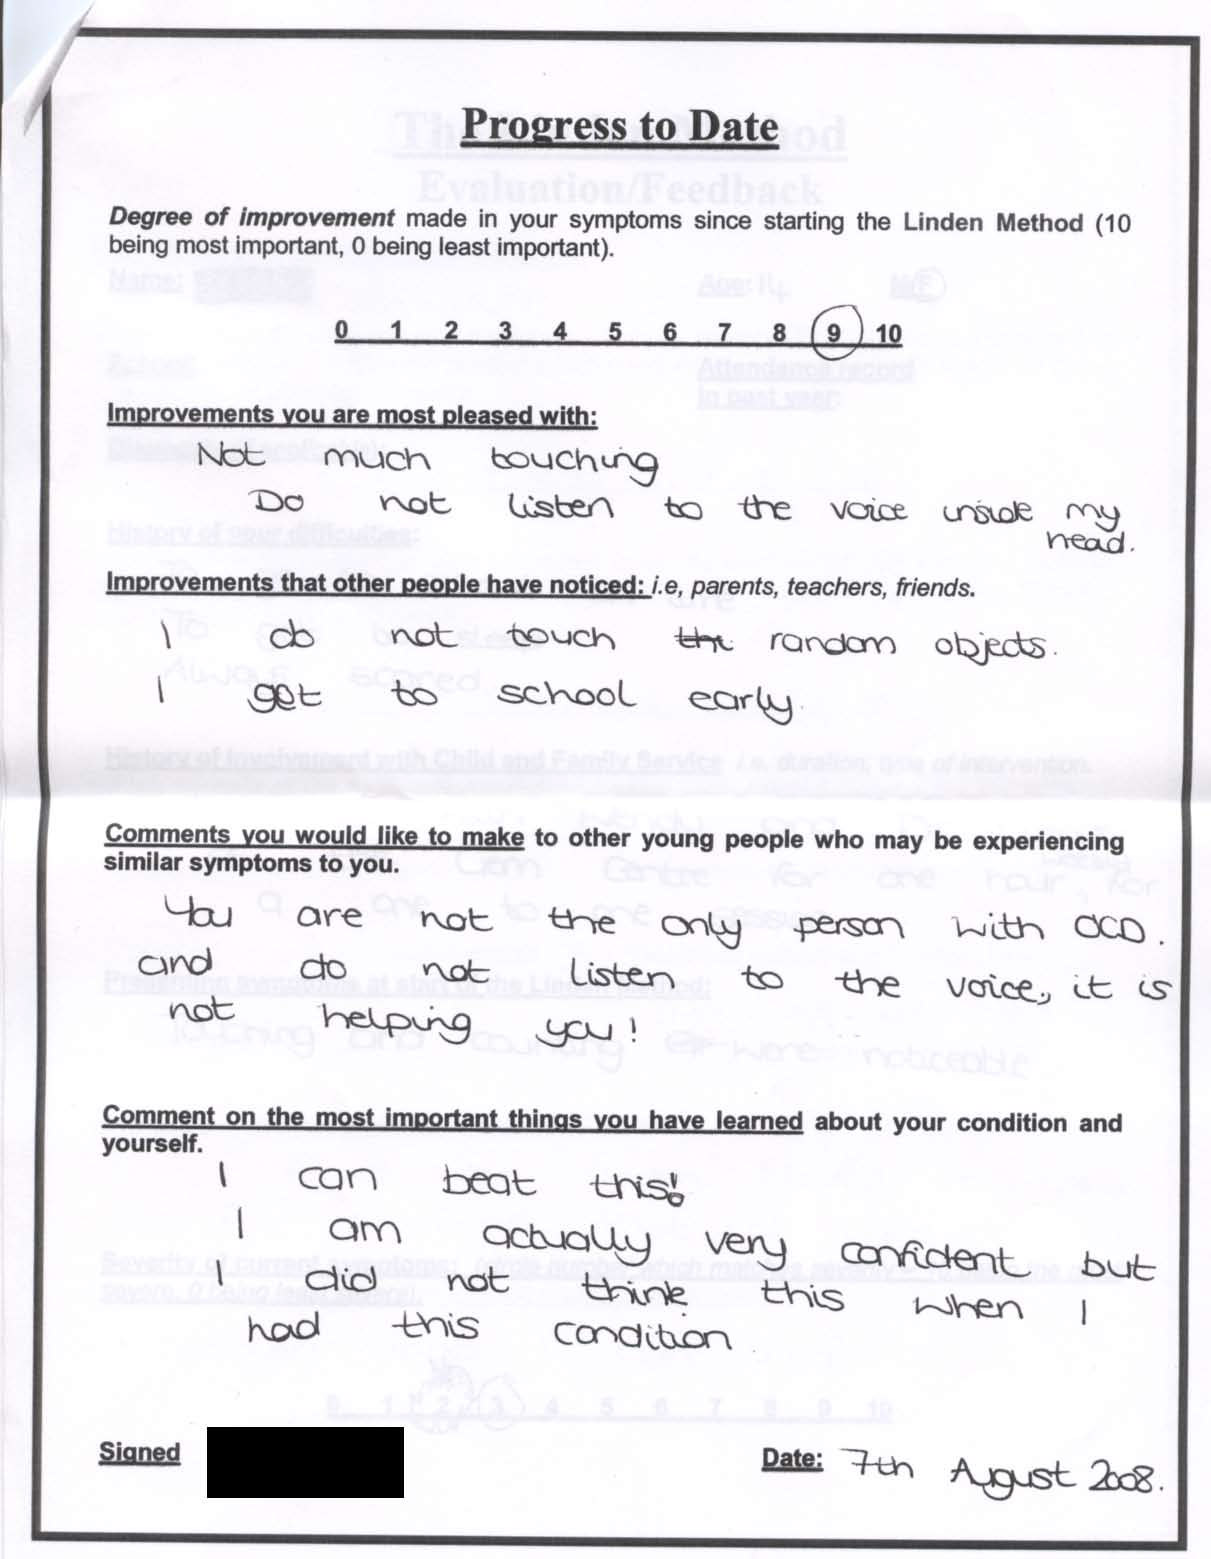 Progress to Date
Degree of improvement made in your symptoms since starting the Linden Method (10
being most important, 0 being least important).
0 1 2 3 4 5 6 7 8 9 10
Improvements you are most pleased with:
Not much touching
Do not listen to the voice inside my
head.
Improvements that other people have noticed: i.e, parents, teachers, friends.
I do not touch the random objects.
I get to school early.
Comments you would like to make to other young people who may be experiencing
similar symptoms to you.
You are not the only person with OCD.
and do not listen to the voice, it is
not helping you!
Comment on the most important things you have learned about your condition and
yourself.
I can beat this!
I am actually very confident but
I did not think this when I
had this condition
Signed
Date: 7th August 2008.